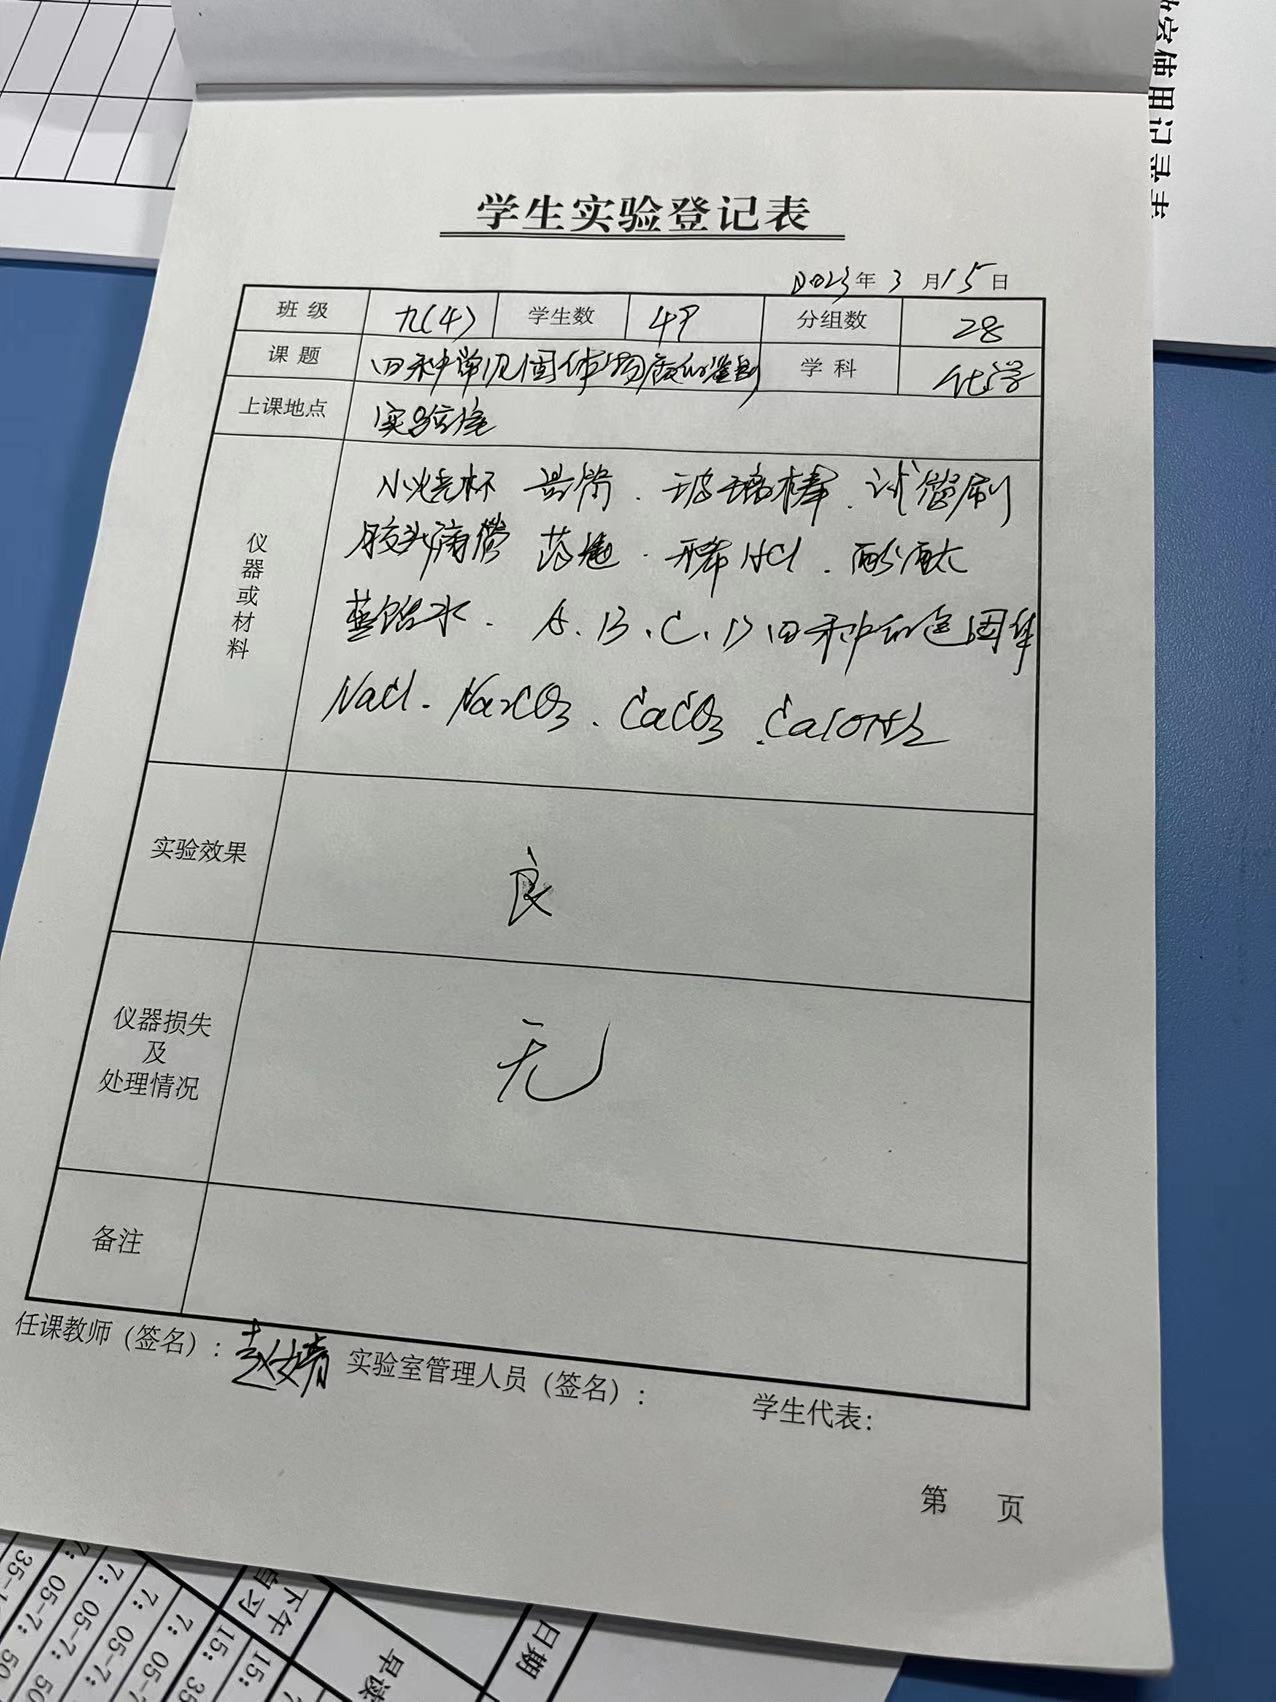 学生实验登记表
2023年3月15日
班级 九(4) 学生数 49 分组数 28
课题 四种常见固体物质的鉴别 学科 化学
上课地点 实验室
仪器或材料
小烧杯 试管. 玻璃棒. 试管刷
胶头滴管 药匙. 稀HCl. 酚酞
蒸馏水. A.B.C.D四种白色固体
NaCl. Na2CO3. CaCO3. Ca(OH)2
实验效果 良
仪器损失
及
处理情况
无
备注
任课教师(签名): 赵婧 实验室管理人员(签名): 学生代表:
第 页
下午
自习
早读
日期